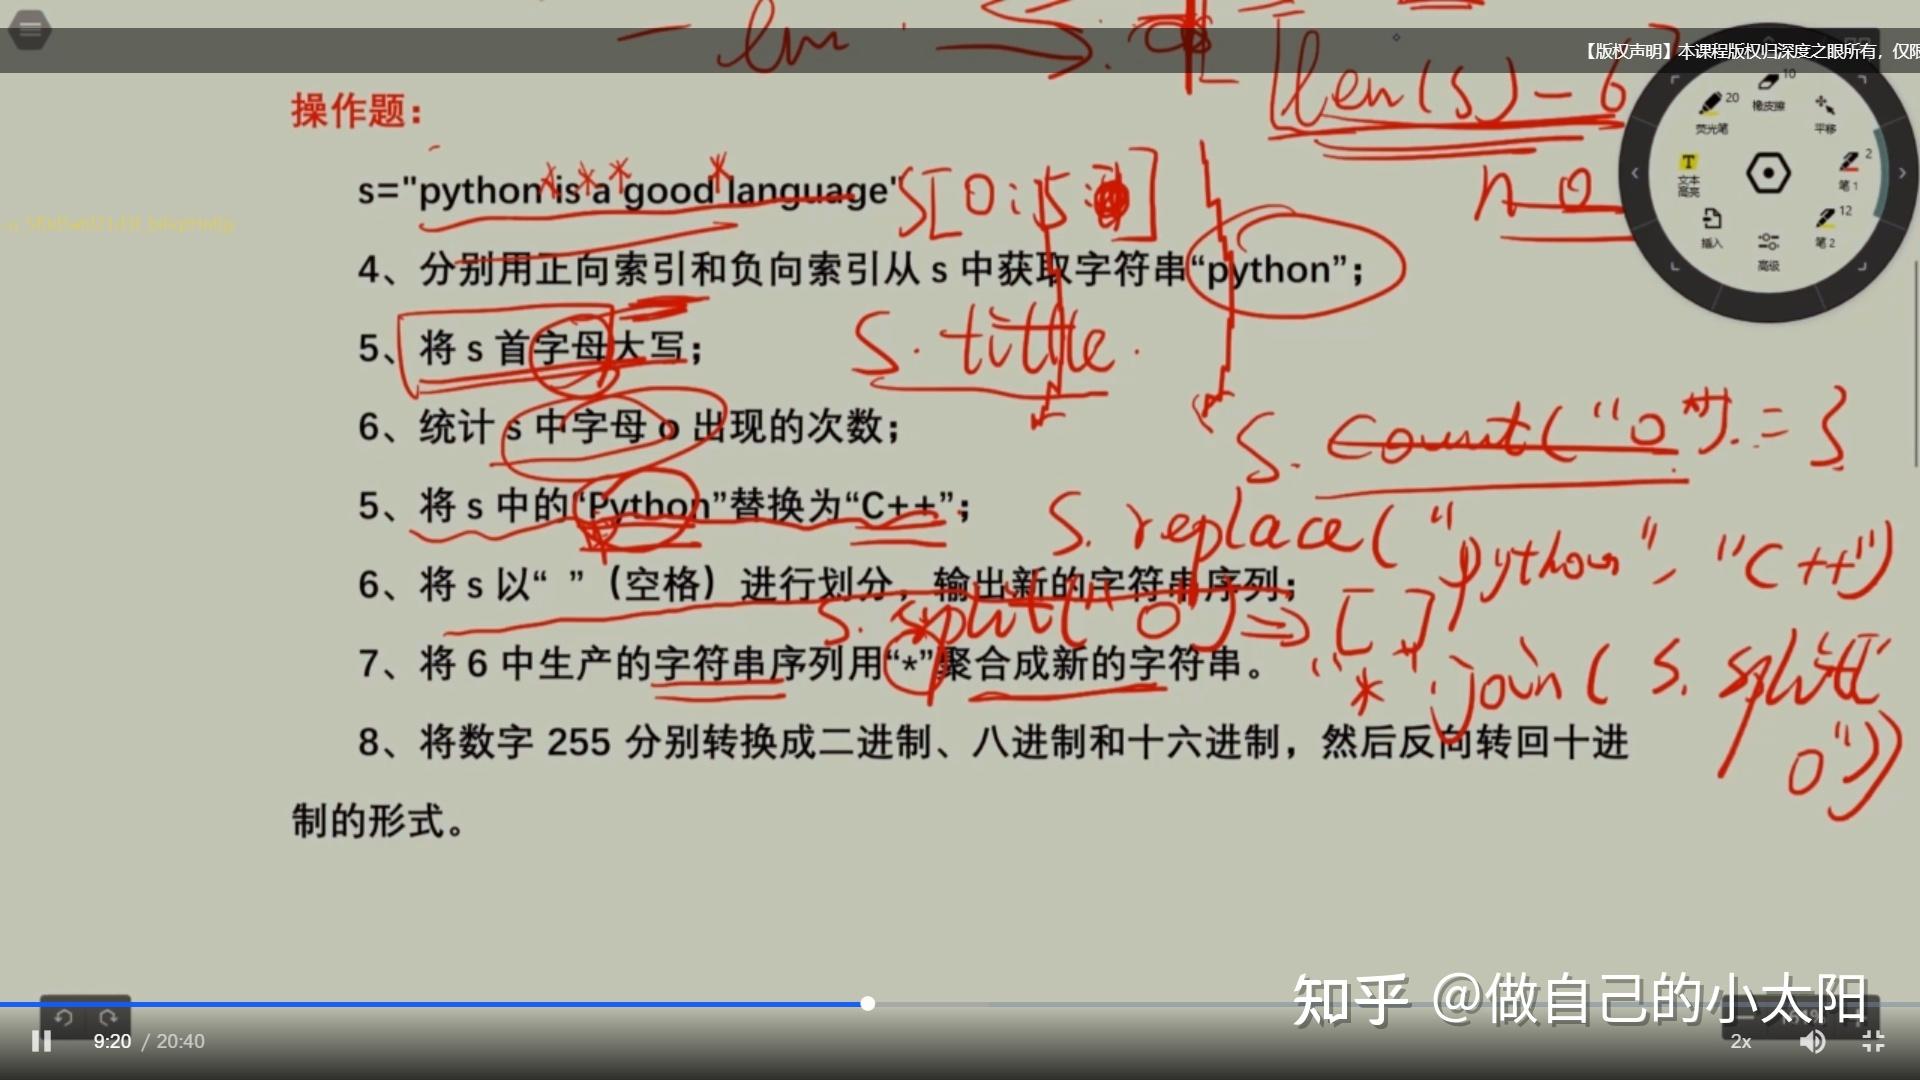 【版权声明】本课程版权归深度之眼所有，仅限
len(s)-6
操作题：
s="python is a good language"
s[0:5:
no
4、分别用正向索引和负向索引从 s 中获取字符串“python”；
5、将 s 首字母大写；
s.tittle.
6、统计 s 中字母 o 出现的次数；
s.count("o").=3
5、将 s 中的“Python”替换为“C++”；
s.replace("python","C++")
6、将 s 以“ ”（空格）进行划分，输出新的字符串序列；
s.split("0")=>[ ]
7、将 6 中生产的字符串序列用“*”聚合成新的字符串。
"*".join(s.split("
0"))
8、将数字 255 分别转换成二进制、八进制和十六进制，然后反向转回十进
制的形式。
10
橡皮擦
20
荧光笔
平移
T
文本
高亮
2
笔 1
插入
高级
12
笔 2
知乎 @做自己的小太阳
9:20 / 20:40
2x